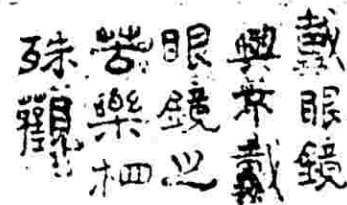 戴眼鏡
與不戴
眼鏡之
苦樂相
殊觀